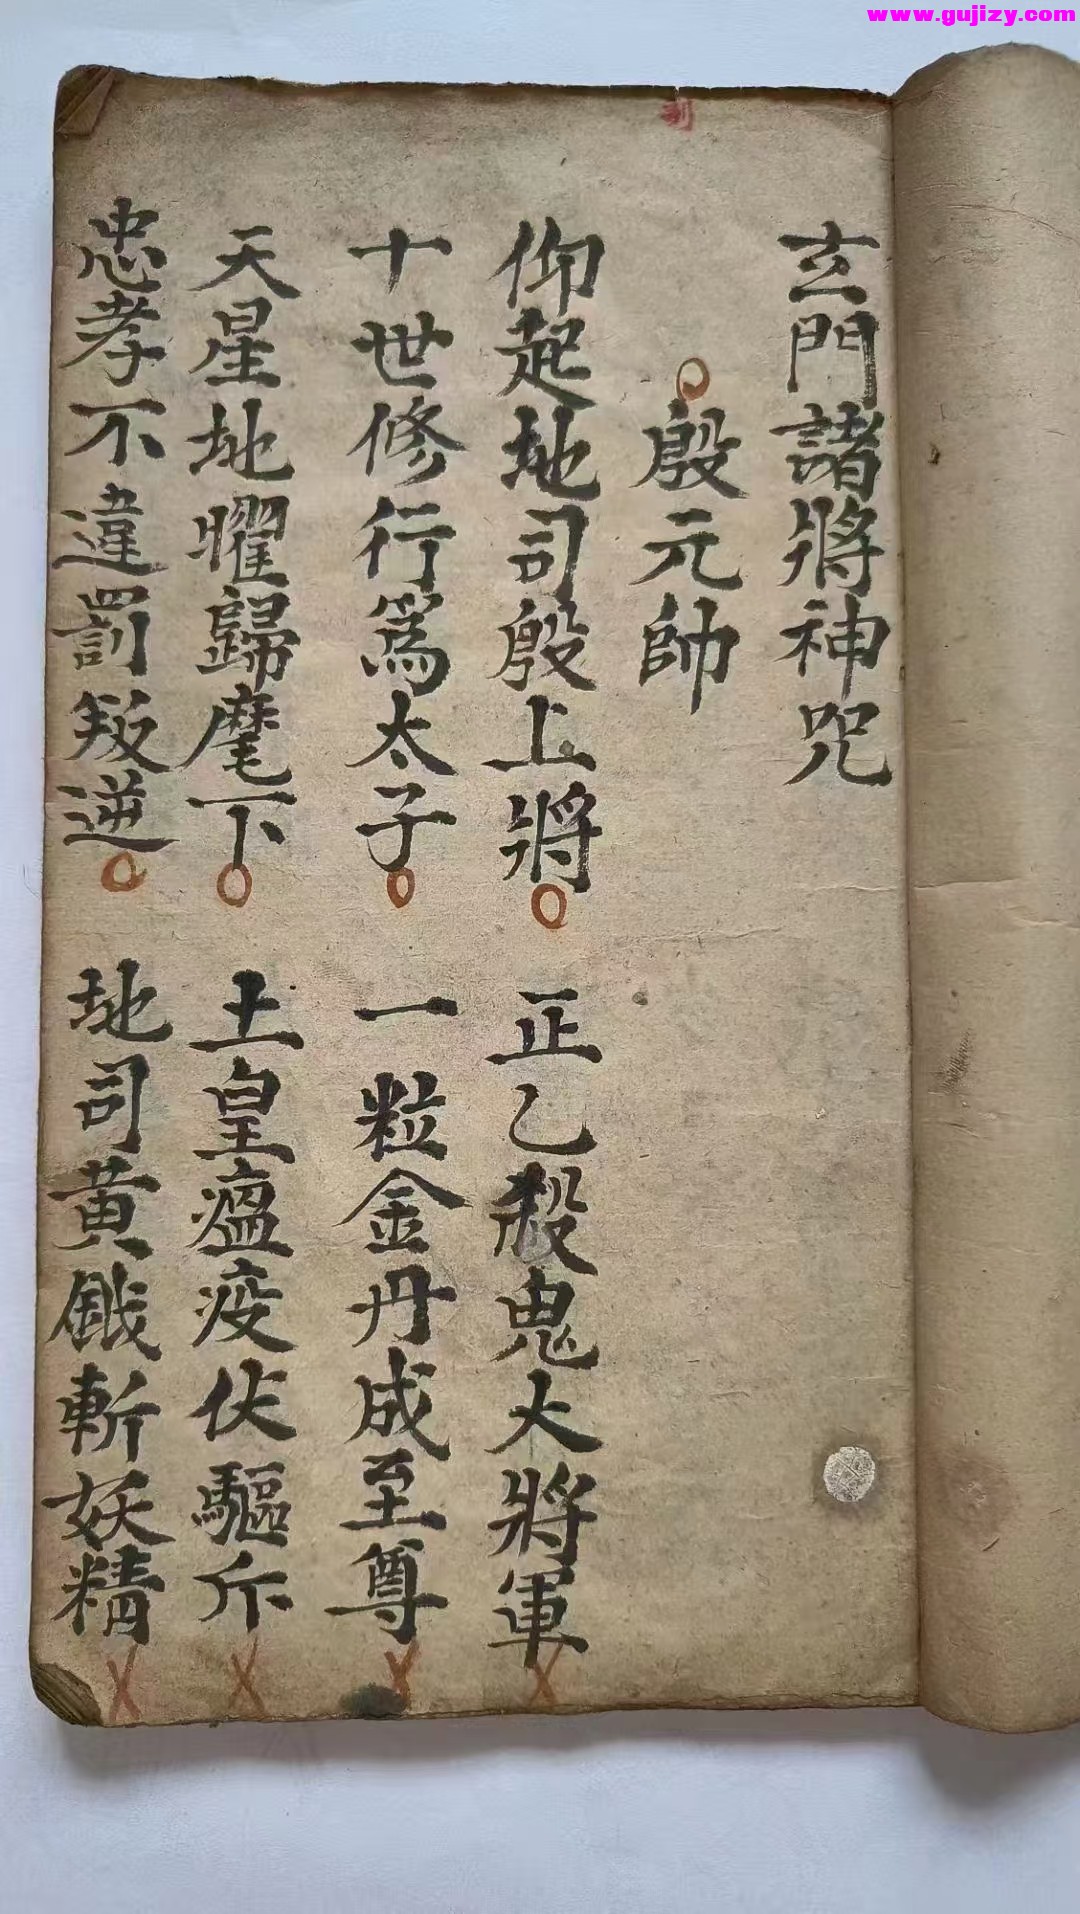 www.gujizy.com
玄門諸將神咒
殷元帥
仰起地司殷上將 正乙殺鬼大將軍
十世修行爲太子 一粒金丹成至尊
天星地曜歸麾下 土皇瘟疫伏驅斥
忠孝不違罰叛逆 地司黃鉞斬妖精